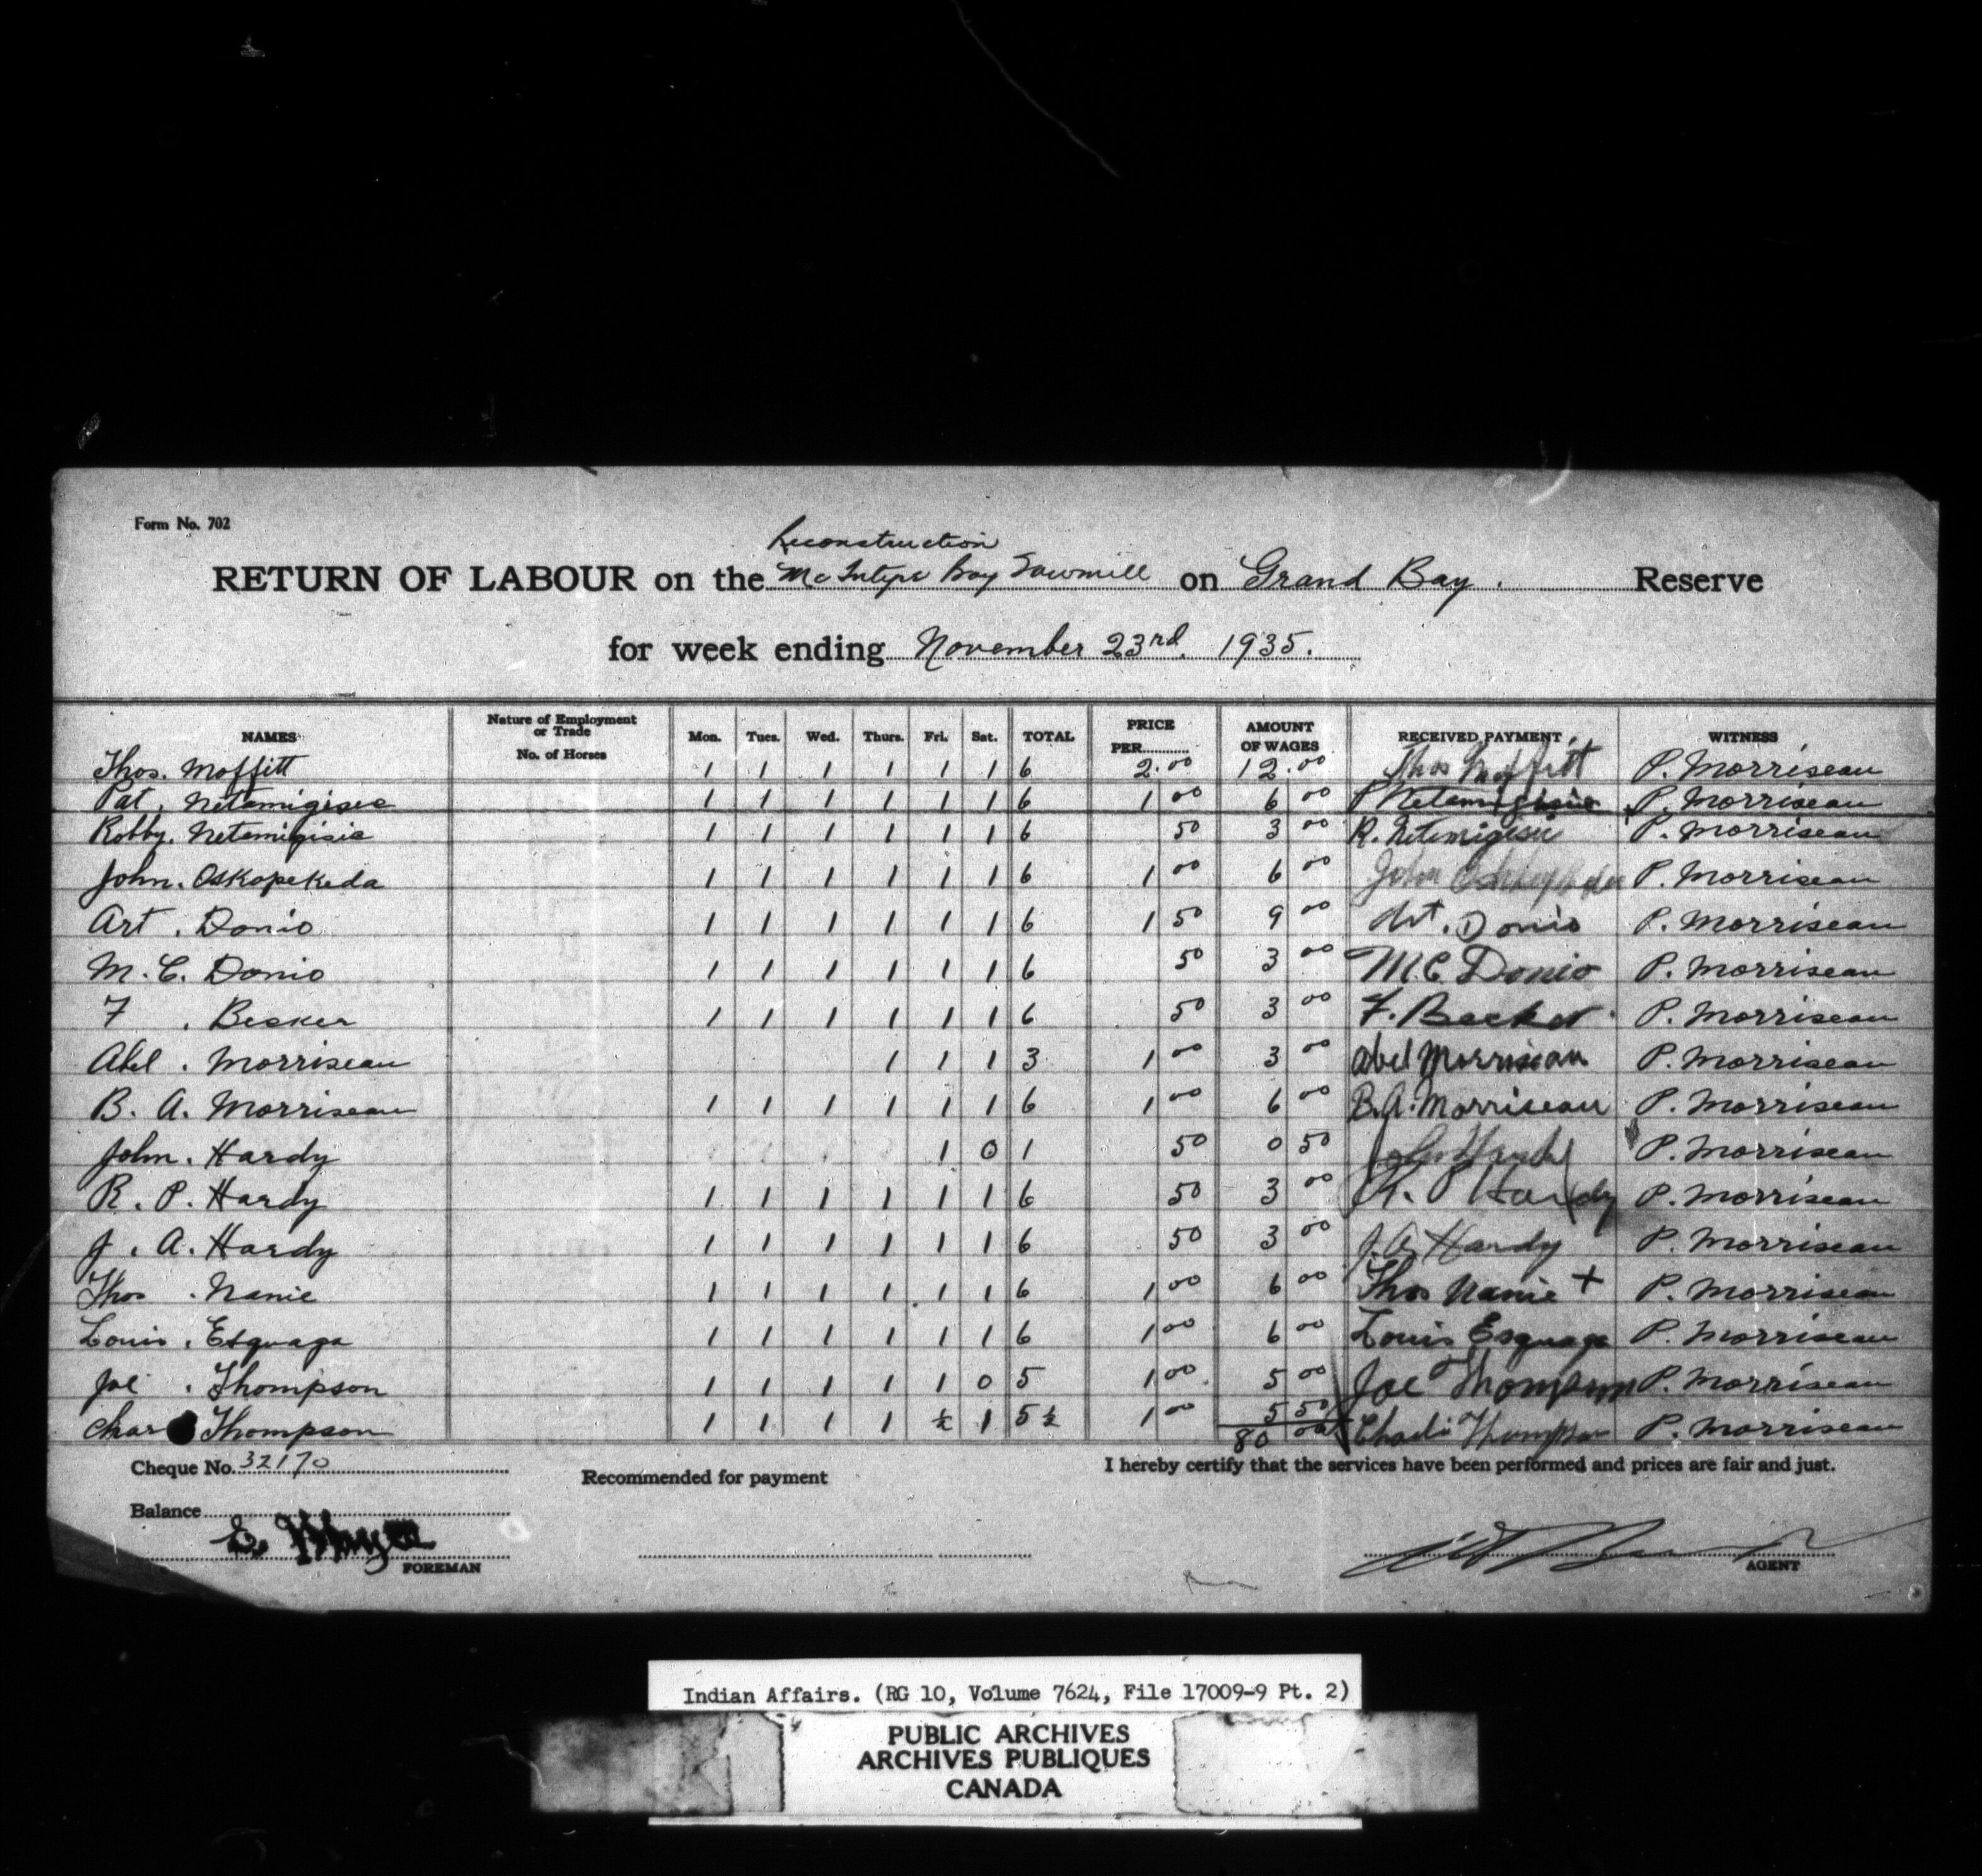 Form No. 702
Reconstruction
RETURN OF LABOUR on the McIntyre Bay Sawmill on Grand Bay. Reserve
for week ending November 23rd. 1935.
NAMES Nature of Employment or Trade No. of Horses Mon. Tues. Wed. Thurs. Fri. Sat. TOTAL PRICE PER AMOUNT OF WAGES RECEIVED PAYMENT WITNESS
Thos. Moffitt 1 1 1 1 1 1 6 2.00 12.00 Thos Moffitt P. Morriseau
Pat. Netamigisic 1 1 1 1 1 1 6 1 00 6 00 P Netamigisic P. Morriseau
Robby. Netamigisic 1 1 1 1 1 1 6 50 3 00 R. Netemigisic P. Morriseau
John. Oskopekeda 1 1 1 1 1 1 6 1 00 6 00 John P. Morriseau
Art. Donio 1 1 1 1 1 1 6 1 50 9 00 Art. Donio P. Morriseau
M. C. Donio 1 1 1 1 1 1 6 50 3 00 M.C Donio P. Morriseau
F. Becker 1 1 1 1 1 1 6 50 3 00 F. Becker P. Morriseau
Abel. Morriseau 1 1 1 3 1 00 3 00 Abel Morriseau P. Morriseau
B. A. Morriseau 1 1 1 1 1 1 6 1 00 6 00 B.A. Morriseau P. Morriseau
John. Hardy 1 0 1 50 0 50 John Hardy P. Morriseau
R. P. Hardy 1 1 1 1 1 1 6 50 3 00 R. P Hardy P. Morriseau
J. A. Hardy 1 1 1 1 1 1 6 50 3 00 J. A. Hardy P. Morriseau
Thos. Nanie 1 1 1 1 1 1 6 1 00 6 00 Thos Nanie + P. Morriseau
Louis. Esquaga 1 1 1 1 1 1 6 1 00 6 00 Louis Esquaga P. Morriseau
Joe. Thompson 1 1 1 1 1 0 5 1 00 5 00 Joe Thompson P. Morriseau
Chas Thompson 1 1 1 1 ½ 1 5½ 1 00 5 50 Charli Thompson P. Morriseau
80 00
Cheque No. 32170 Recommended for payment I hereby certify that the services have been performed and prices are fair and just.
Balance
E.
FOREMAN AGENT
Indian Affairs. (RG 10, Volume 7624, File 17009-9 Pt. 2)
PUBLIC ARCHIVES
ARCHIVES PUBLIQUES
CANADA